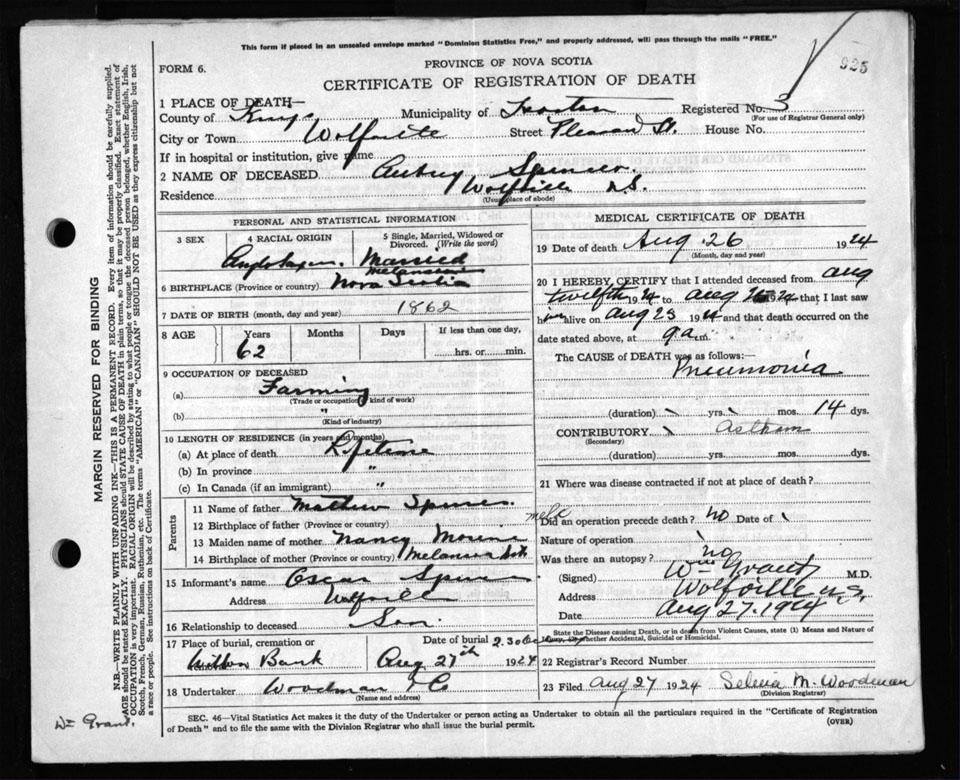 This form if placed in an unsealed envelope marked "Dominion Statistics Free," and properly addressed, will pass through the mails "FREE."
925
FORM 6.
PROVINCE OF NOVA SCOTIA
CERTIFICATE OF REGISTRATION OF DEATH
1 PLACE OF DEATH—
County of Kings Municipality of Registered No. 3
(For use of Registrar General only)
City or Town Wolfville Street Pleasant St. House No.
If in hospital or institution, give name
2 NAME OF DECEASED Aubrey Spencer
Residence Wolfville N.S.
(Usual place of abode)
PERSONAL AND STATISTICAL INFORMATION
3 SEX
4 RACIAL ORIGIN
Anglo Saxon
5 Single, Married, Widowed or Divorced. (Write the word)
Married
6 BIRTHPLACE (Province or country) Nova Scotia
7 DATE OF BIRTH (month, day and year) 1862
8 AGE
Years Months Days If less than one day,
62 hrs. or min.
9 OCCUPATION OF DECEASED
(a) Farming
(Trade or occupation, kind of work)
(b) "
(Kind of industry)
10 LENGTH OF RESIDENCE (in years and months)
(a) At place of death Lifetime
(b) In province "
(c) In Canada (if an immigrant) "
Parents
11 Name of father Mathew Spencer
12 Birthplace of father (Province or country)
13 Maiden name of mother Nancy
14 Birthplace of mother (Province or country)
15 Informant's name Oscar Spencer
Address Wolfville
16 Relationship to deceased Son
17 Place of burial, cremation or Date of burial 2.30
Bank Aug 27th 1924
18 Undertaker Woodman & Co
(Name and address)
MEDICAL CERTIFICATE OF DEATH
19 Date of death Aug. 26 1924
(Month, day and year)
20 I HEREBY CERTIFY that I attended deceased from Aug
twelfth 1924 to Aug 1924 that I last saw
him alive on Aug 25 1924 and that death occurred on the
date stated above, at 9 a.m.
The CAUSE OF DEATH was as follows:
Pneumonia
(duration) yrs. mos. 14 dys.
CONTRIBUTORY
(Secondary)
(duration) yrs. mos. dys.
21 Where was disease contracted if not at place of death?
Did an operation precede death? No Date of
Nature of operation
Was there an autopsy? no
(Signed) Wm Grant M.D.
Address Wolfville N.S.
Date Aug 27. 1924
State the Disease causing Death, or in death from Violent Causes, state (1) Means and Nature of
whether Accidental, Suicidal or Homicidal.
22 Registrar's Record Number
23 Filed Aug 27 1924 Selina M. Woodman
(Division Registrar)
SEC. 46—Vital Statistics Act makes it the duty of the Undertaker or person acting as Undertaker to obtain all the particulars required in the "Certificate of Registration
of Death" and to file the same with the Division Registrar who shall issue the burial permit.
(OVER)
MARGIN RESERVED FOR BINDING
N.B.—WRITE PLAINLY WITH UNFADING INK—THIS IS A PERMANENT RECORD. Every item of information should be carefully supplied.
AGE should be stated EXACTLY. PHYSICIANS should STATE CAUSE OF DEATH in plain terms, so that it may be properly classified. Exact statement of
OCCUPATION is very important. RACIAL ORIGIN will be described by stating to what people or tongue the deceased person belonged, whether English, Irish,
Scotch, French, German, Russian, Ruthenian, etc. The terms "AMERICAN" or "CANADIAN" SHOULD NOT BE USED as they express citizenship but not
a race or people. See instructions on back of Certificate.
Wm Grant.